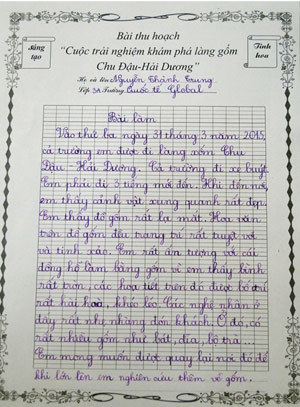 Bài thu hoạch
Sáng tạo
"Cuộc trải nghiệm khám phá làng gốm
Tinh hoa
Chu Đậu-Hải Dương"
Họ và tên Nguyễn Thành Trung
Lớp 3A Trường Quốc tế Global
Bài làm
Vào thứ ba ngày 31 tháng 3 năm 2015,
cả trường em được đi làng gốm Chu
Đậu Hải Dương. Cả trường đi xe buýt.
Em phải đi 3 tiếng mới đến. Khi đến nơi,
em thấy cảnh vật xung quanh rất đẹp.
Em thấy đồ gốm rất lạ mắt. Hoa văn
trên đồ gốm đều trang trí rất tuyệt vời
và tinh xảo. Em rất ấn tượng với cái
đồng hồ làm bằng gốm vì em thấy bình
rất tròn, các họa tiết trên đó được bố trí
rất hài hoà, khéo léo. Các nghệ nhân ở
đây rất nhẹ nhàng đón khách. Ở đó, có
rất nhiều gốm như bát, đĩa, bộ trà...
Em mong muốn được quay lại nơi đó để
khi lớn lên em nghiên cứu thêm về gốm.